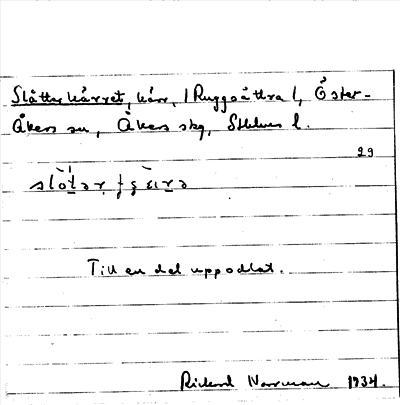 Slåtterkärret, kärr, (Ruggsättra), Öster-
Åkers sn, Åkers skg, Sthlms l.
29
Till en del uppodlat.
Rickard Norrman 1934.